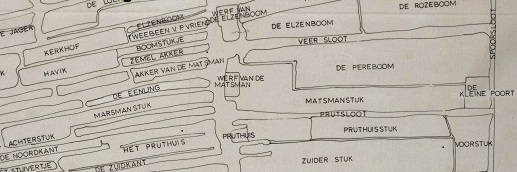 DE ROZEBOOM
WERF VAN
DE ELZENBOOM
ELZENBOOM
TWEEBEEN V.P. VRIEND
DE ELZENBOOM
DE JAGER
BOOMSTUKJE
VEER SLOOT
SPOORSLOOT
KERKHOF
ZEMEL AKKER
HAVIK
AKKER VAN DE MATSMAN
DE PEREBOOM
WERF VAN DE
MATSMAN
DE EENLING
DE
KLEINE POORT
MATSMANSTUK
MARSMANSTUK
PRUTSLOOT
PRUTHUIS
PRUTHUISSTUK
ACHTERSTUK
HET PRUTHUIS
VOORSTUK
DE NOORDKANT
ZUIDER STUK
ET STUIVERTJE
DE ZUIDKANT